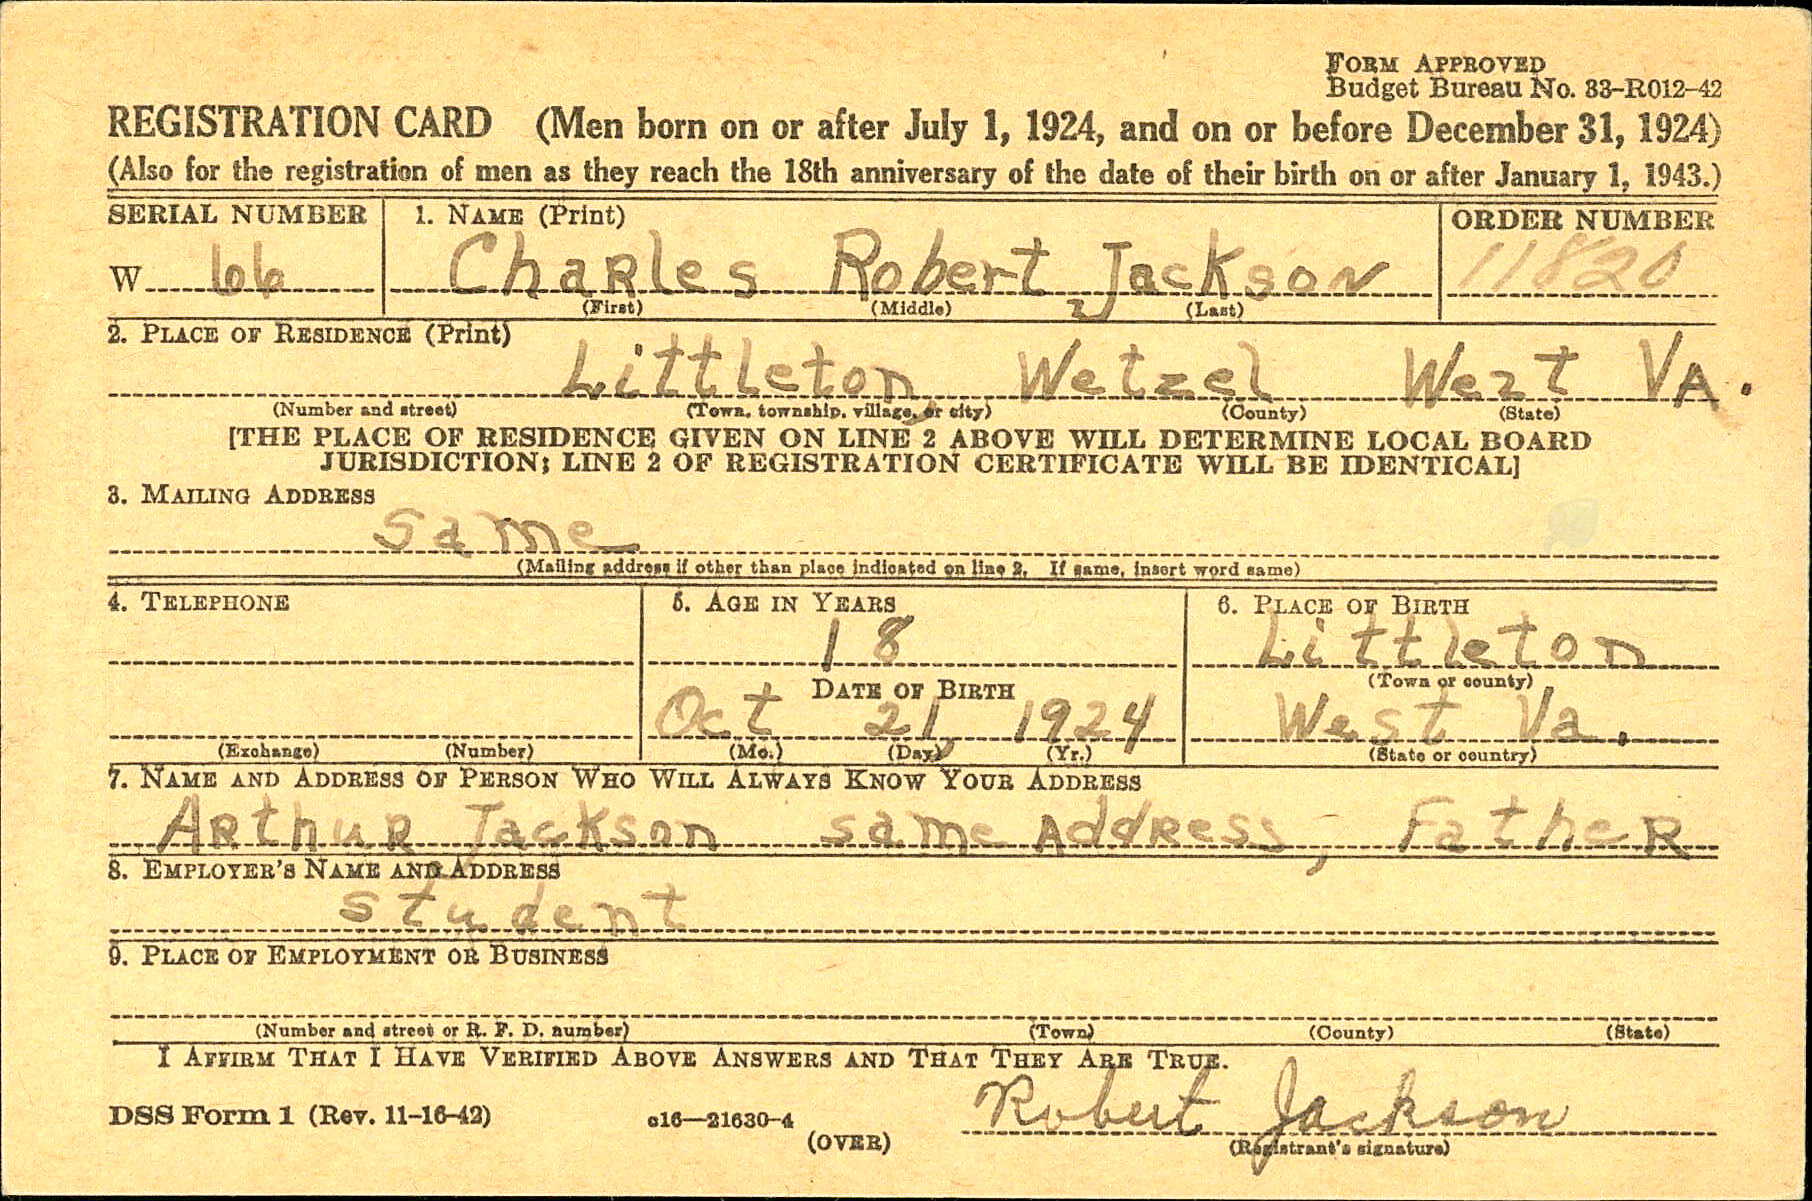 FORM APPROVED
Budget Bureau No. 33-R012-42
REGISTRATION CARD (Men born on or after July 1, 1924, and on or before December 31, 1924)
(Also for the registration of men as they reach the 18th anniversary of the date of their birth on or after January 1, 1943.)
SERIAL NUMBER 1. NAME (Print) ORDER NUMBER
W 66 Charles Robert Jackson 11820
(First) (Middle) (Last)
2. PLACE OF RESIDENCE (Print)
Littleton, Wetzel West VA.
(Number and street) (Town, township, village, or city) (County) (State)
[THE PLACE OF RESIDENCE GIVEN ON LINE 2 ABOVE WILL DETERMINE LOCAL BOARD
JURISDICTION; LINE 2 OF REGISTRATION CERTIFICATE WILL BE IDENTICAL]
3. MAILING ADDRESS
Same
(Mailing address if other than place indicated on line 2. If same, insert word same)
4. TELEPHONE 5. AGE IN YEARS 6. PLACE OF BIRTH
18 Littleton
DATE OF BIRTH (Town or county)
Oct 21, 1924 West Va.
(Exchange) (Number) (Mo.) (Day) (Yr.) (State or country)
7. NAME AND ADDRESS OF PERSON WHO WILL ALWAYS KNOW YOUR ADDRESS
Arthur Jackson same Address, Father
8. EMPLOYER'S NAME AND ADDRESS
student
9. PLACE OF EMPLOYMENT OR BUSINESS
(Number and street or R. F. D. number) (Town) (County) (State)
I AFFIRM THAT I HAVE VERIFIED ABOVE ANSWERS AND THAT THEY ARE TRUE.
Robert Jackson
DSS Form 1 (Rev. 11-16-42) c16—21630-4 (OVER) (Registrant's signature)